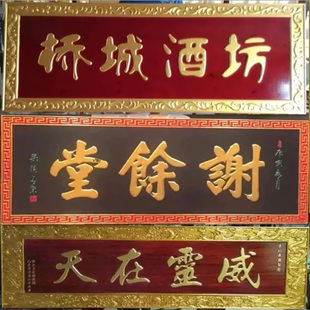 桥城酒坊
謝餘堂
威靈在天